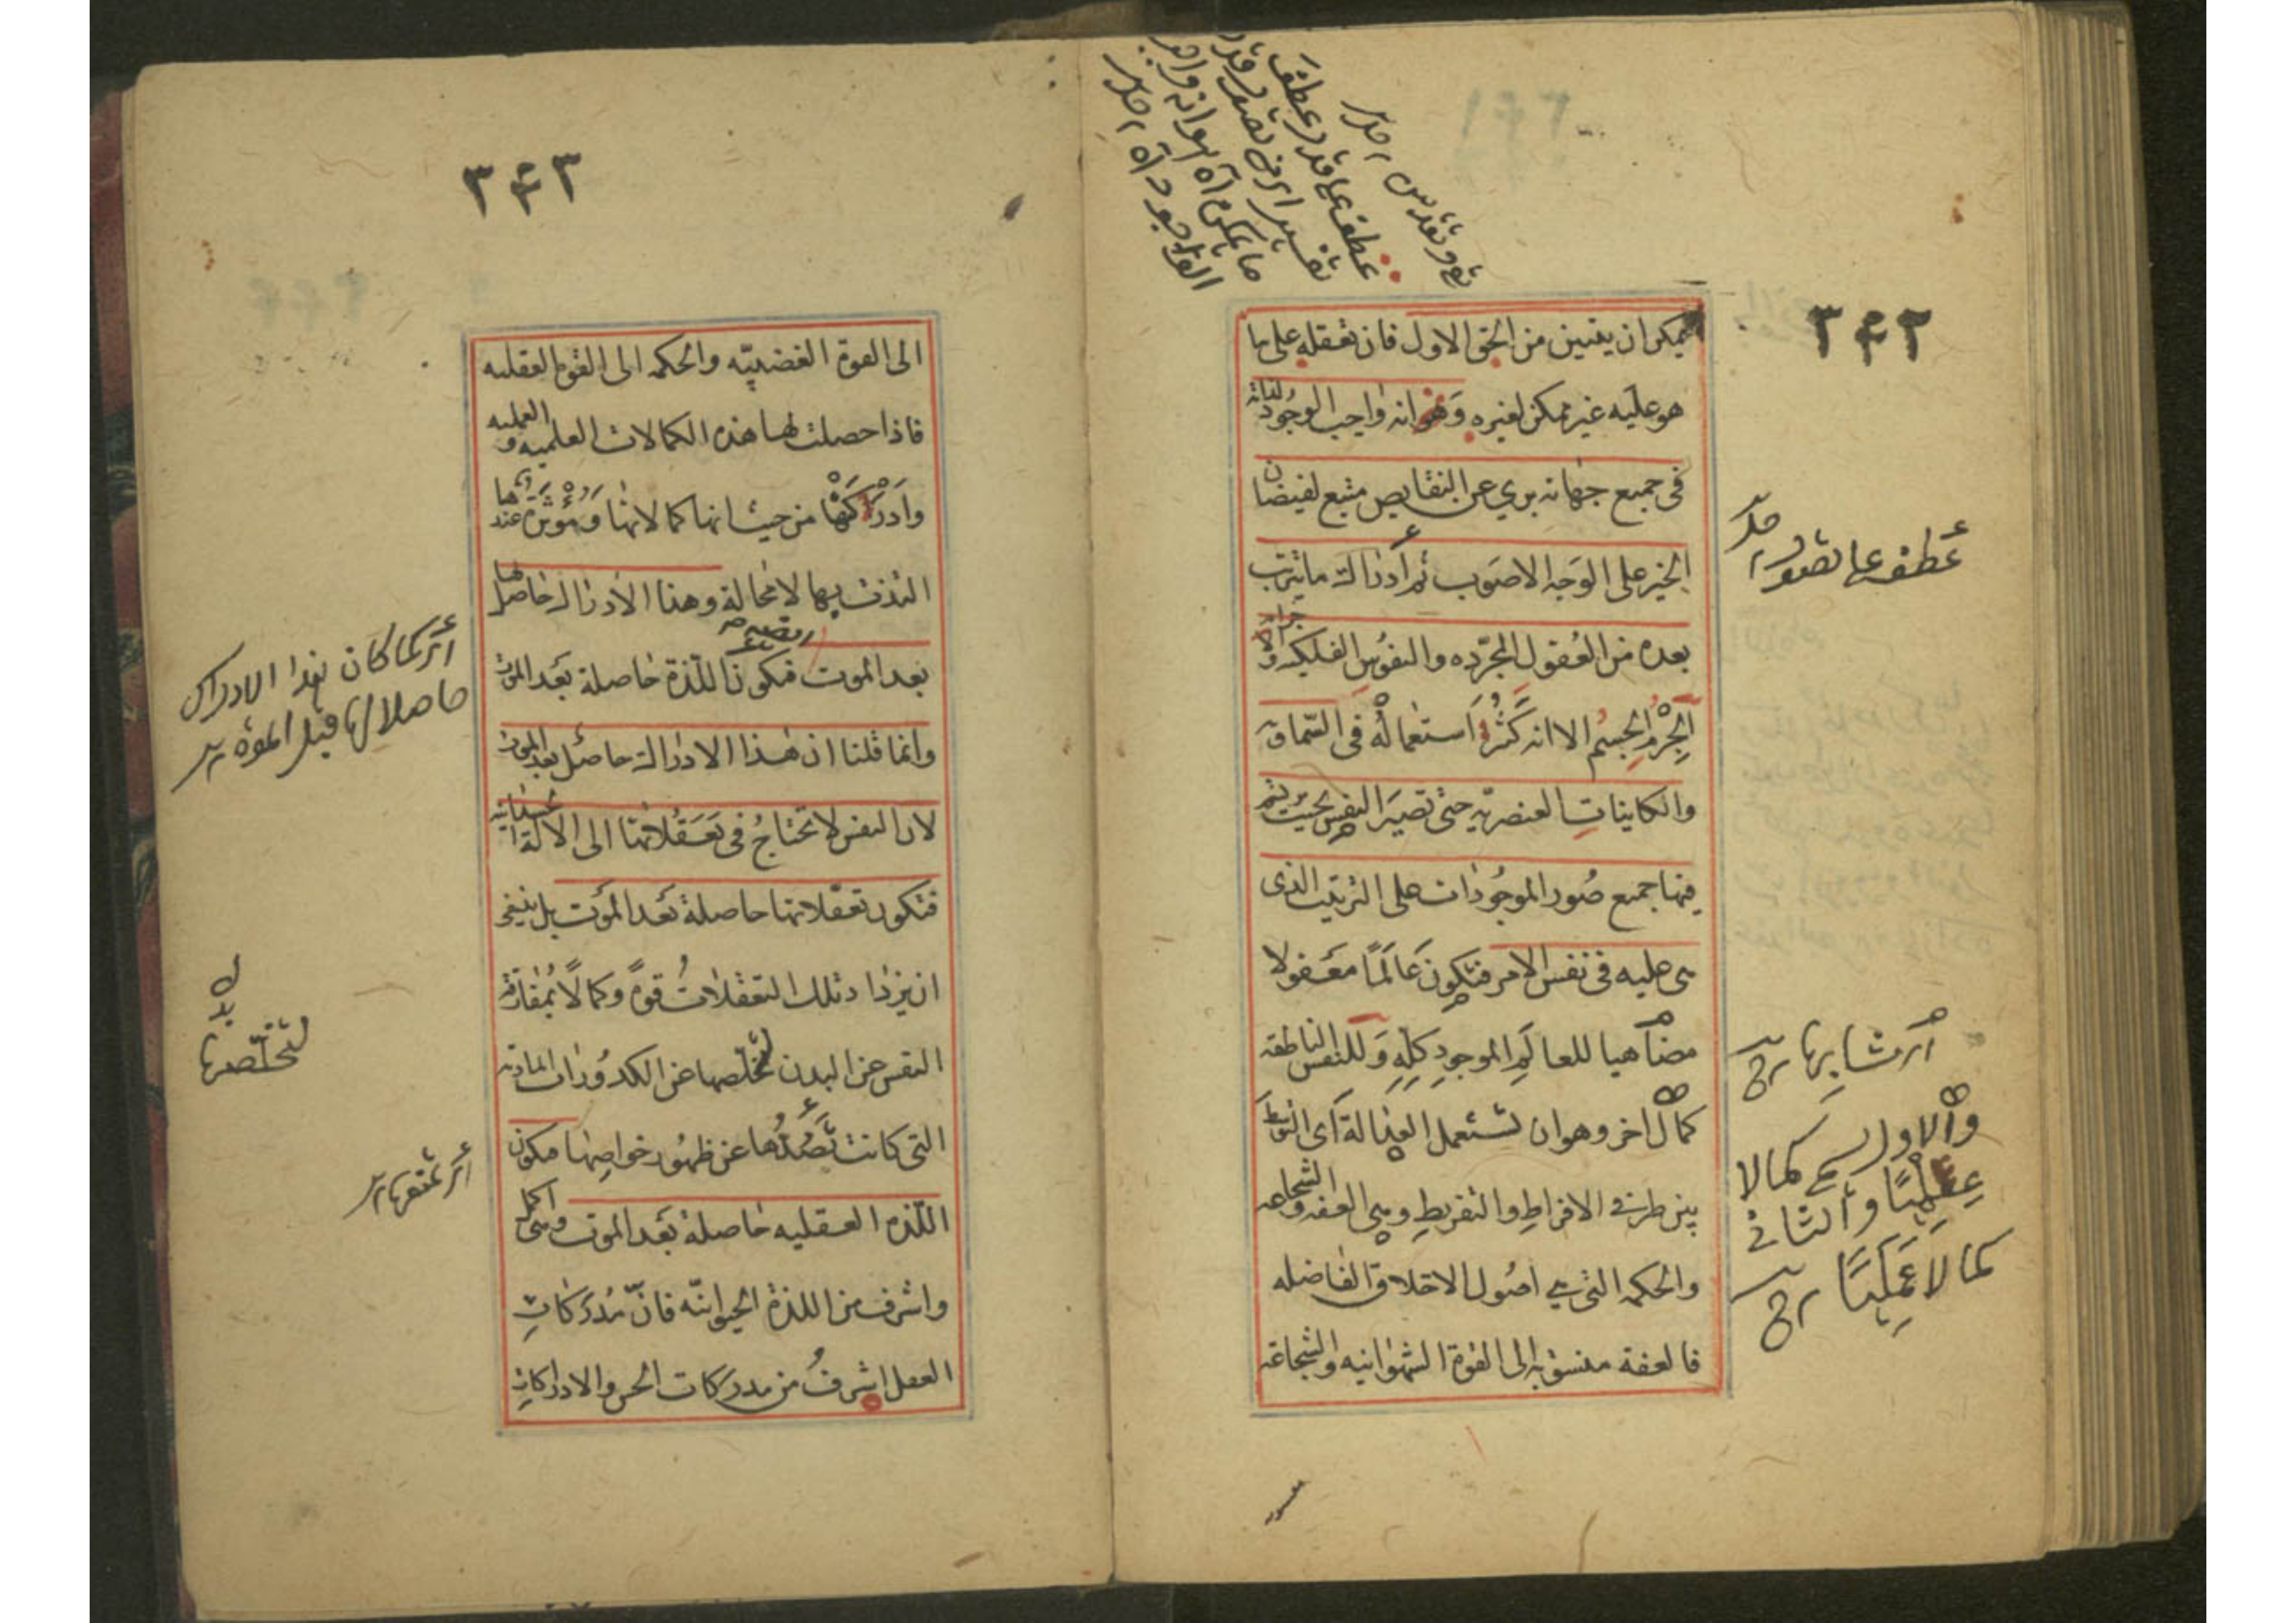 ٣٤٢
يمكن ان يتبين من الحق الاول فان تعقله على ما
هو عليه غير ممكن لغيره وهو انه واجب الوجود لذاته
فى جميع جهاته بري عن النقايص منبع لفيضان
الخير على الوجه الاصوب ثم ادراك ما يترتب
بعده من العُقول المجرّده والنفوُس الفلكيه والاجرام
الجِرْم الجسم الا انه كَثُرَ استعمالُهُ فى السّماوية
والكاينات العنصريّه حتى تصير النفس بحيث يرتسم
فيها جميع صُور الموجُودات على الترتيب الذى
هى عليه فى نفس الامر فتكون عَالَمًا معقولا
مضاهيا للعالَمِ الموجودِ كلِّهِ وَللنفس الناطقه
كمال اخر وهو ان تستعمل العدالة اى التوسط
بين طرفى الافراطِ والتفريطِ وهى العفه والشجاعه
والحكمه التى هي اصُول الاخلاق الفاضله
فالعفة منسوبة الى القوة الشهوانيه والشجاعه
عطف على تصور
اى مشابها
والاول يسمى كمالا
عِلْمِيًا والثانى
كمالا عَمَلِيًا
٣٤٣
الى القوة الغضبيّه والحكمه الى القوة العقليه
فاذا حصلت لها هذه الكمالات العلميه و العمليه
وادركتها من حيث انها كمالاتها وَمُؤْثَرَة عندها
التذت بها لا محالة وهذا الادراك حاصل لها
بعد الموت فتكون اللذة حاصلة بعد الموت
وانما قلنا ان هذا الادراك حاصل بعد الموت
لان النفس لا تحتاجُ فى تَعَقُّلاتها الى الالة الجسمانيه
فتكون تعقّلاتها حاصلة بعد الموت بل ينبغى
ان يزداد تلك التعقلات قوةً وكمالًا بمُفارقة
النفس عن البدن لتخلّصها عن الكدوُرات الماديه
التى كانت تَصُدُّها عن ظهوُر خواصها فتكون
اللّذه العقليه حاصلة بعد الموت وهى اكمل
واشرف من اللذة الحيوانيّه فانّ مُدرَكاتِ
العقل اشرفُ من مدركات الحس والادراكات
اى كما كان هذا الادراك
حاصلا لها قبل الموت
لتخلّصها
اى تمنعها